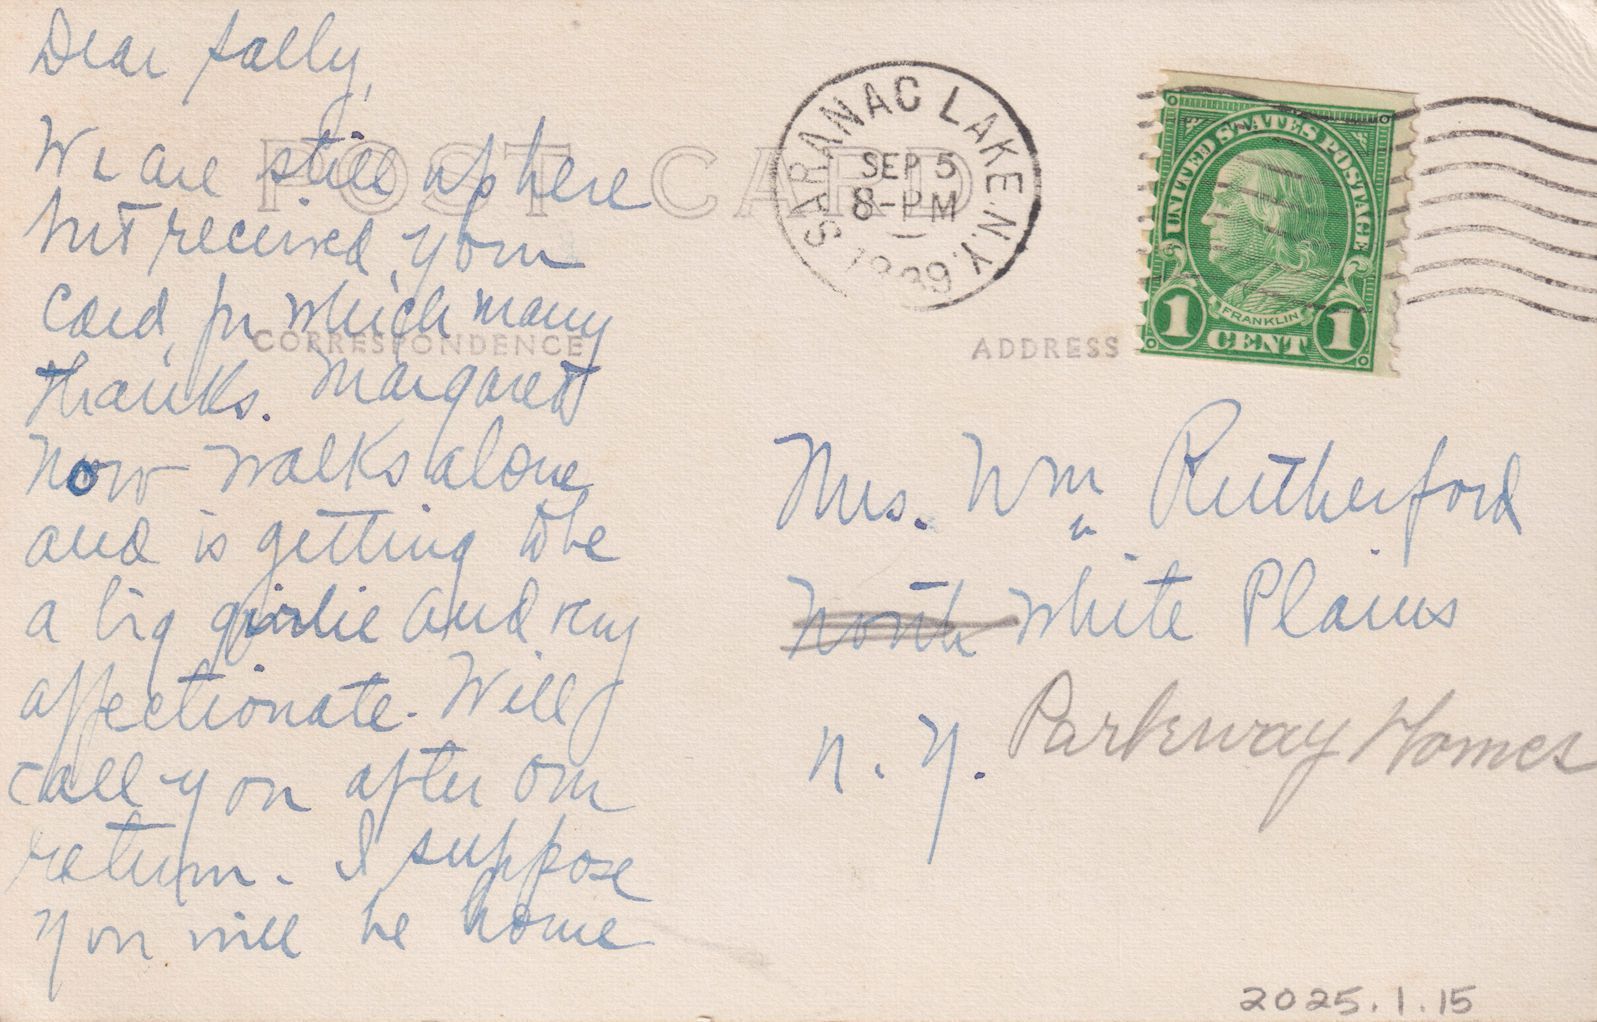 Dear Sally,
We are still up here
but received your
card, for which many
thanks. Margaret
now walks alone
and is getting to be
a big girlie and very
affectionate. Will
call you after our
return. I suppose
you will be home
POST CARD
CORRESPONDENCE
ADDRESS
SARANAC LAKE, N.Y.
SEP 5
8-PM
1939
UNITED STATES POSTAGE
FRANKLIN
1 CENT 1
Mrs. Wm Rutherford
North White Plains
N. Y. Parkway Homes
2025.1.15